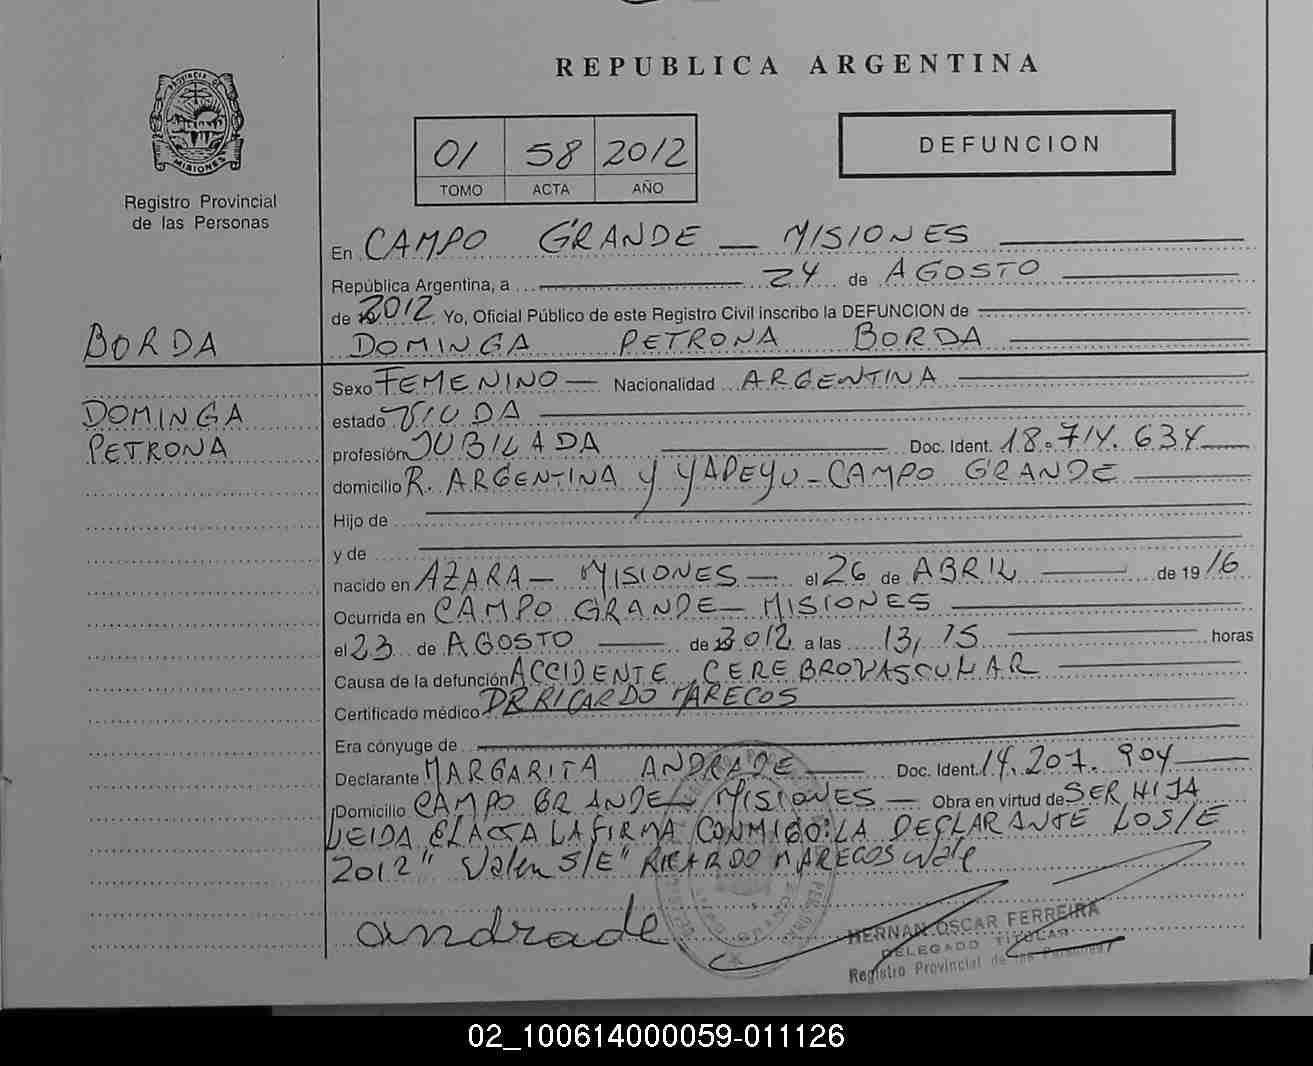 REPUBLICA ARGENTINA
PROVINCIA DE MISIONES
Registro Provincial
de las Personas
01 58 2012
TOMO ACTA AÑO
DEFUNCION
En CAMPO GRANDE — MISIONES
República Argentina, a 24 de AGOSTO
de 2012 Yo, Oficial Público de este Registro Civil inscribo la DEFUNCION de
BORDA
DOMINGA PETRONA BORDA
DOMINGA
PETRONA
Sexo FEMENINO — Nacionalidad ARGENTINA
estado VIUDA
profesión JUBILADA Doc. Ident. 18.714.634
domicilio R. ARGENTINA Y YAPEYU - CAMPO GRANDE
Hijo de
y de
nacido en AZARA — MISIONES — el 26 de ABRIL de 19 16
Ocurrida en CAMPO GRANDE — MISIONES
el 23 de AGOSTO de 2012 a las 13,15 horas
Causa de la defunción ACCIDENTE CEREBROVASCULAR
Certificado médico DR RICARDO MARECOS
Era cónyuge de
Declarante MARGARITA ANDRADE Doc. Ident. 14.207.904
Domicilio CAMPO GRANDE — MISIONES — Obra en virtud de SER HIJA
LEIDA EL ACTA LA FIRMA CONMIGO: LA DECLARANTE LO S/E
2012" Valen S/E" RICARDO MARECOS Vale
andrade
HERNAN OSCAR FERREIRA
DELEGADO TITULAR
Registro Provincial de las Personas
02_100614000059-011126